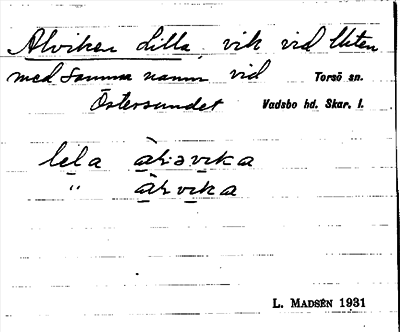 Alviken Lilla, vik vid Uten
med samma namn vid Torsö sn.
Östersundet Vadsbo hd. Skar. l.
lela
"
L. MADSÉN 1931